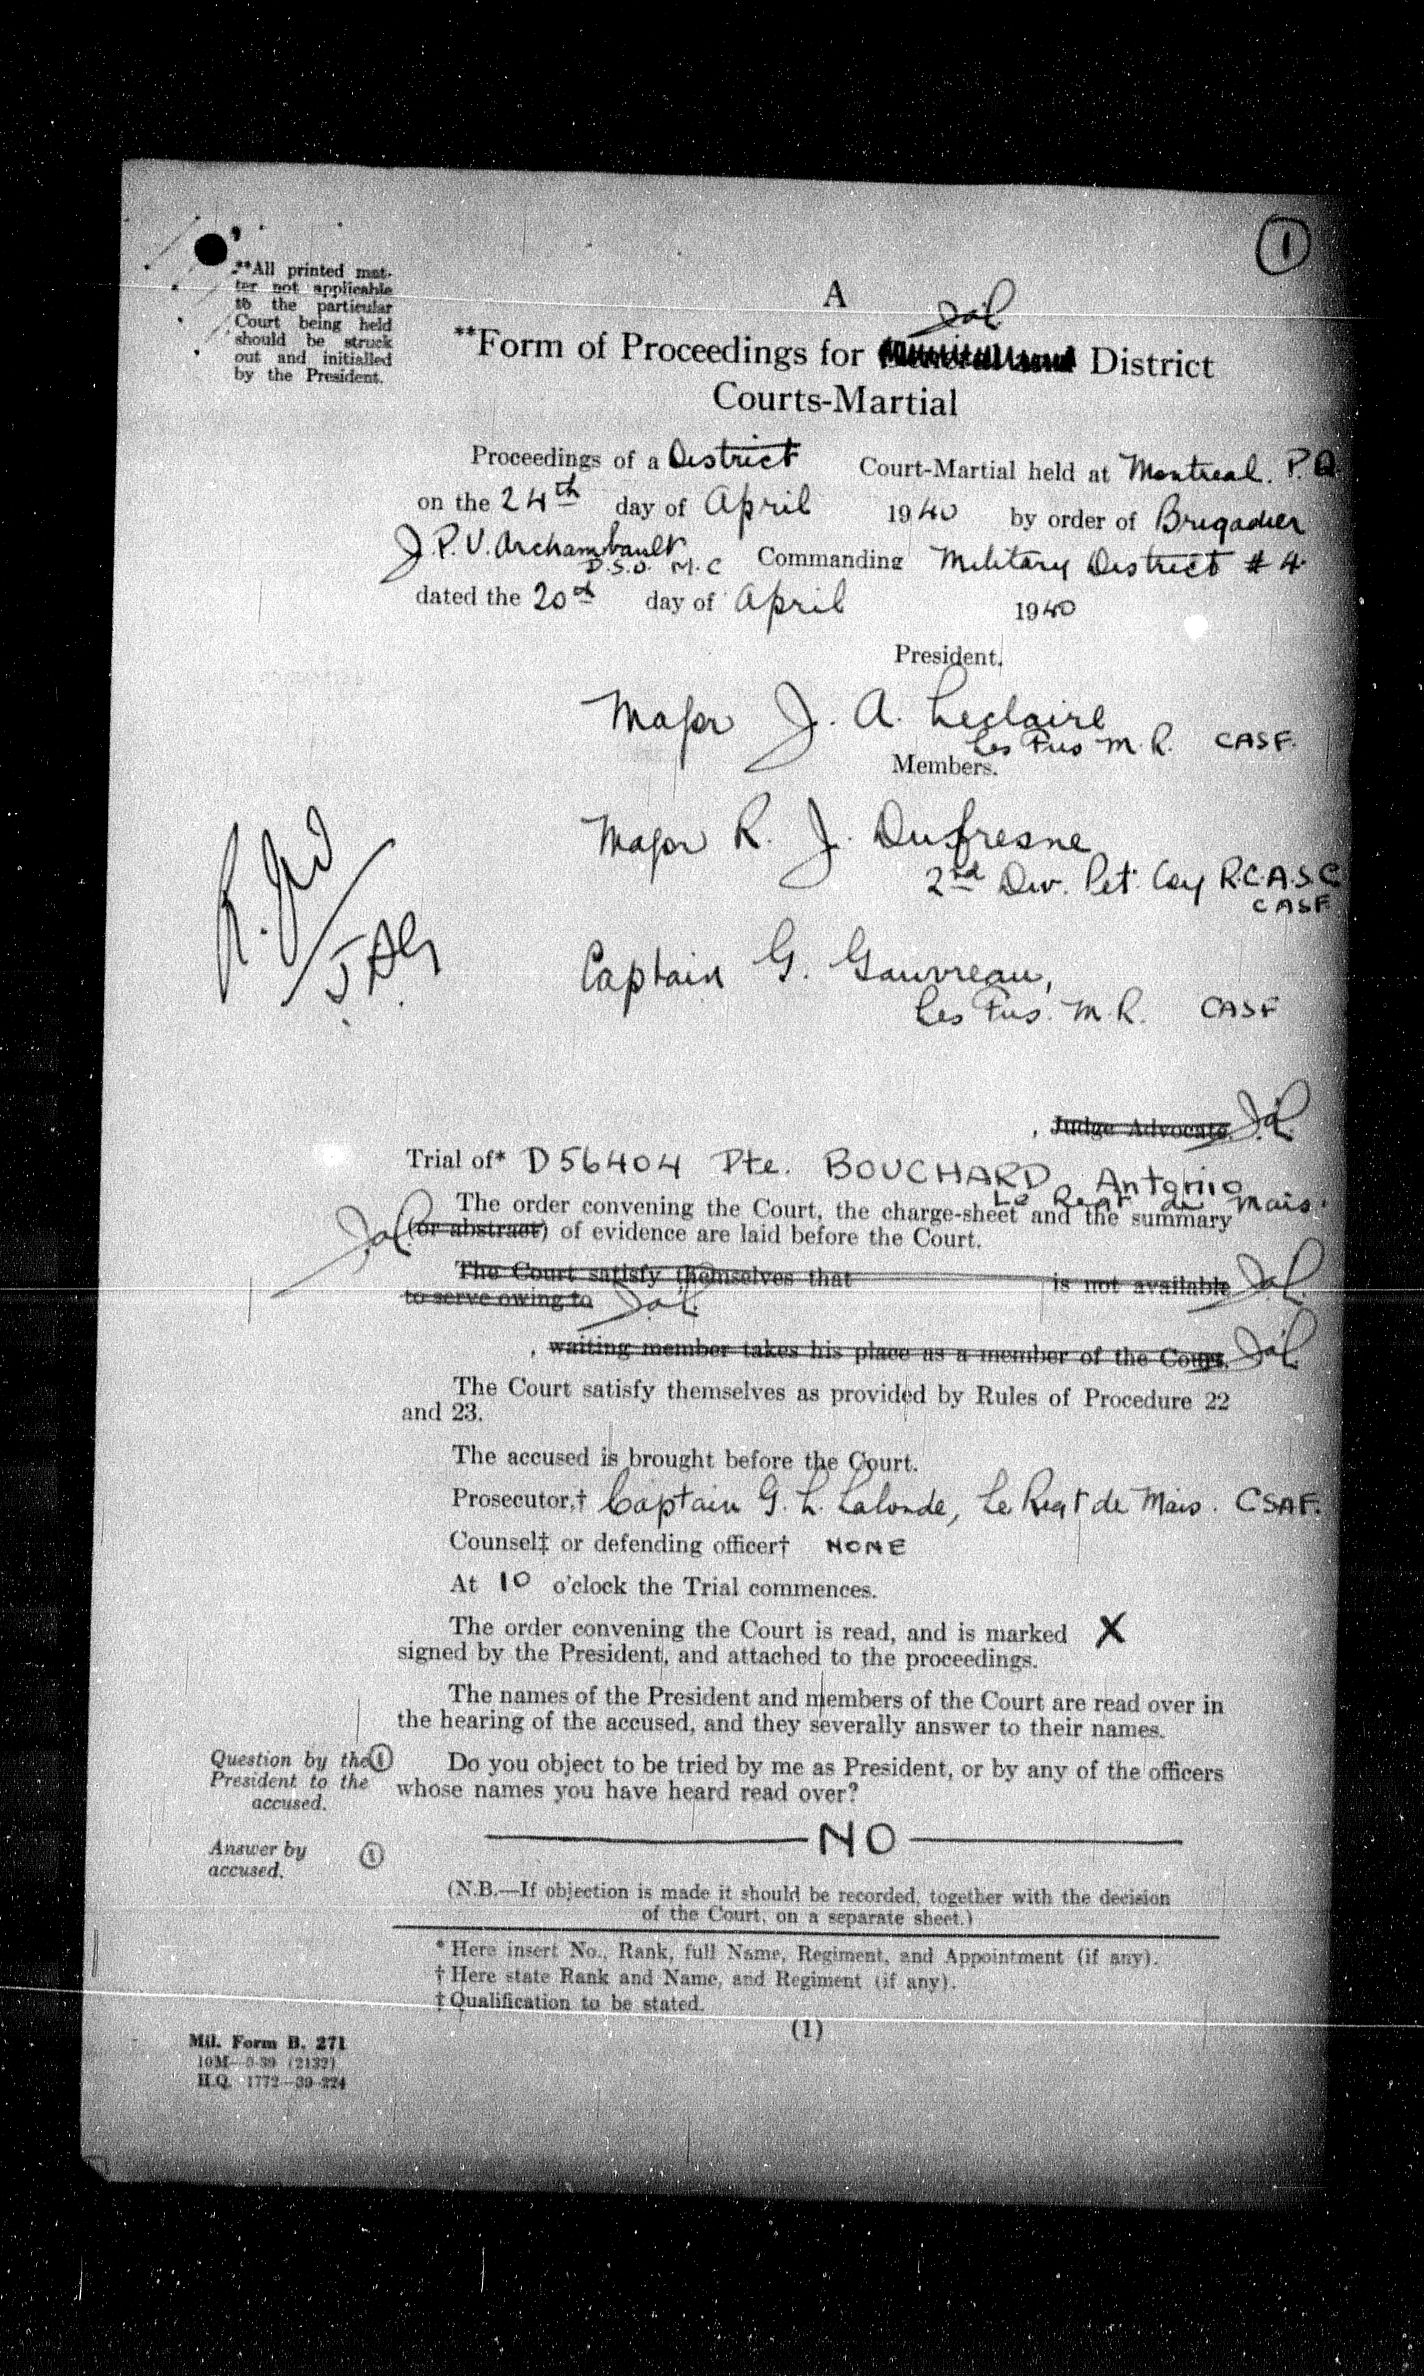 1
**All printed mat-
ter not applicable
to the particular
Court being held
should be struck
out and initialled
by the President.
A
JaL
**Form of Proceedings for General and District
Courts-Martial
Proceedings of a District Court-Martial held at Montreal. P.Q
on the 24th day of April 1940 by order of Brigadier
J.P.V. Archambault D.S.O. M.C Commanding Military District # 4.
dated the 20th day of April 1940
President,
Major J. A. Leclaire
Les Fus M.R. CASF.
Members.
Major R. J. Dufresne
2nd Div. Pet. Coy R.C.A.S.C
CASF
Captain G. Gauvreau,
Les Fus. M.R. CASF
JAG
, Judge Advocate. JaL
Trial of* D56404 Pte. BOUCHARD, Antonio
Le Regt de Mais.
The order convening the Court, the charge-sheet and the summary
JaL (or abstract) of evidence are laid before the Court.
The Court satisfy themselves that is not available JaL
to serve owing to JaL
, waiting member takes his place as a member of the Court. JaL
The Court satisfy themselves as provided by Rules of Procedure 22
and 23.
The accused is brought before the Court.
Prosecutor,† Captain G. L. Lalonde, Le Regt de Mais. CSAF.
Counsel‡ or defending officer† NONE
At 10 o'clock the Trial commences.
The order convening the Court is read, and is marked X
signed by the President, and attached to the proceedings.
The names of the President and members of the Court are read over in
the hearing of the accused, and they severally answer to their names.
Question by the (1) Do you object to be tried by me as President, or by any of the officers
President to the whose names you have heard read over?
accused.
NO
Answer by (1)
accused.
(N.B.—If objection is made it should be recorded, together with the decision
of the Court, on a separate sheet.)
* Here insert No., Rank, full Name, Regiment, and Appointment (if any).
† Here state Rank and Name, and Regiment (if any).
‡ Qualification to be stated.
(1)
Mil. Form B. 271
10M—9-39 (2132)
H.Q. 1772—39-224